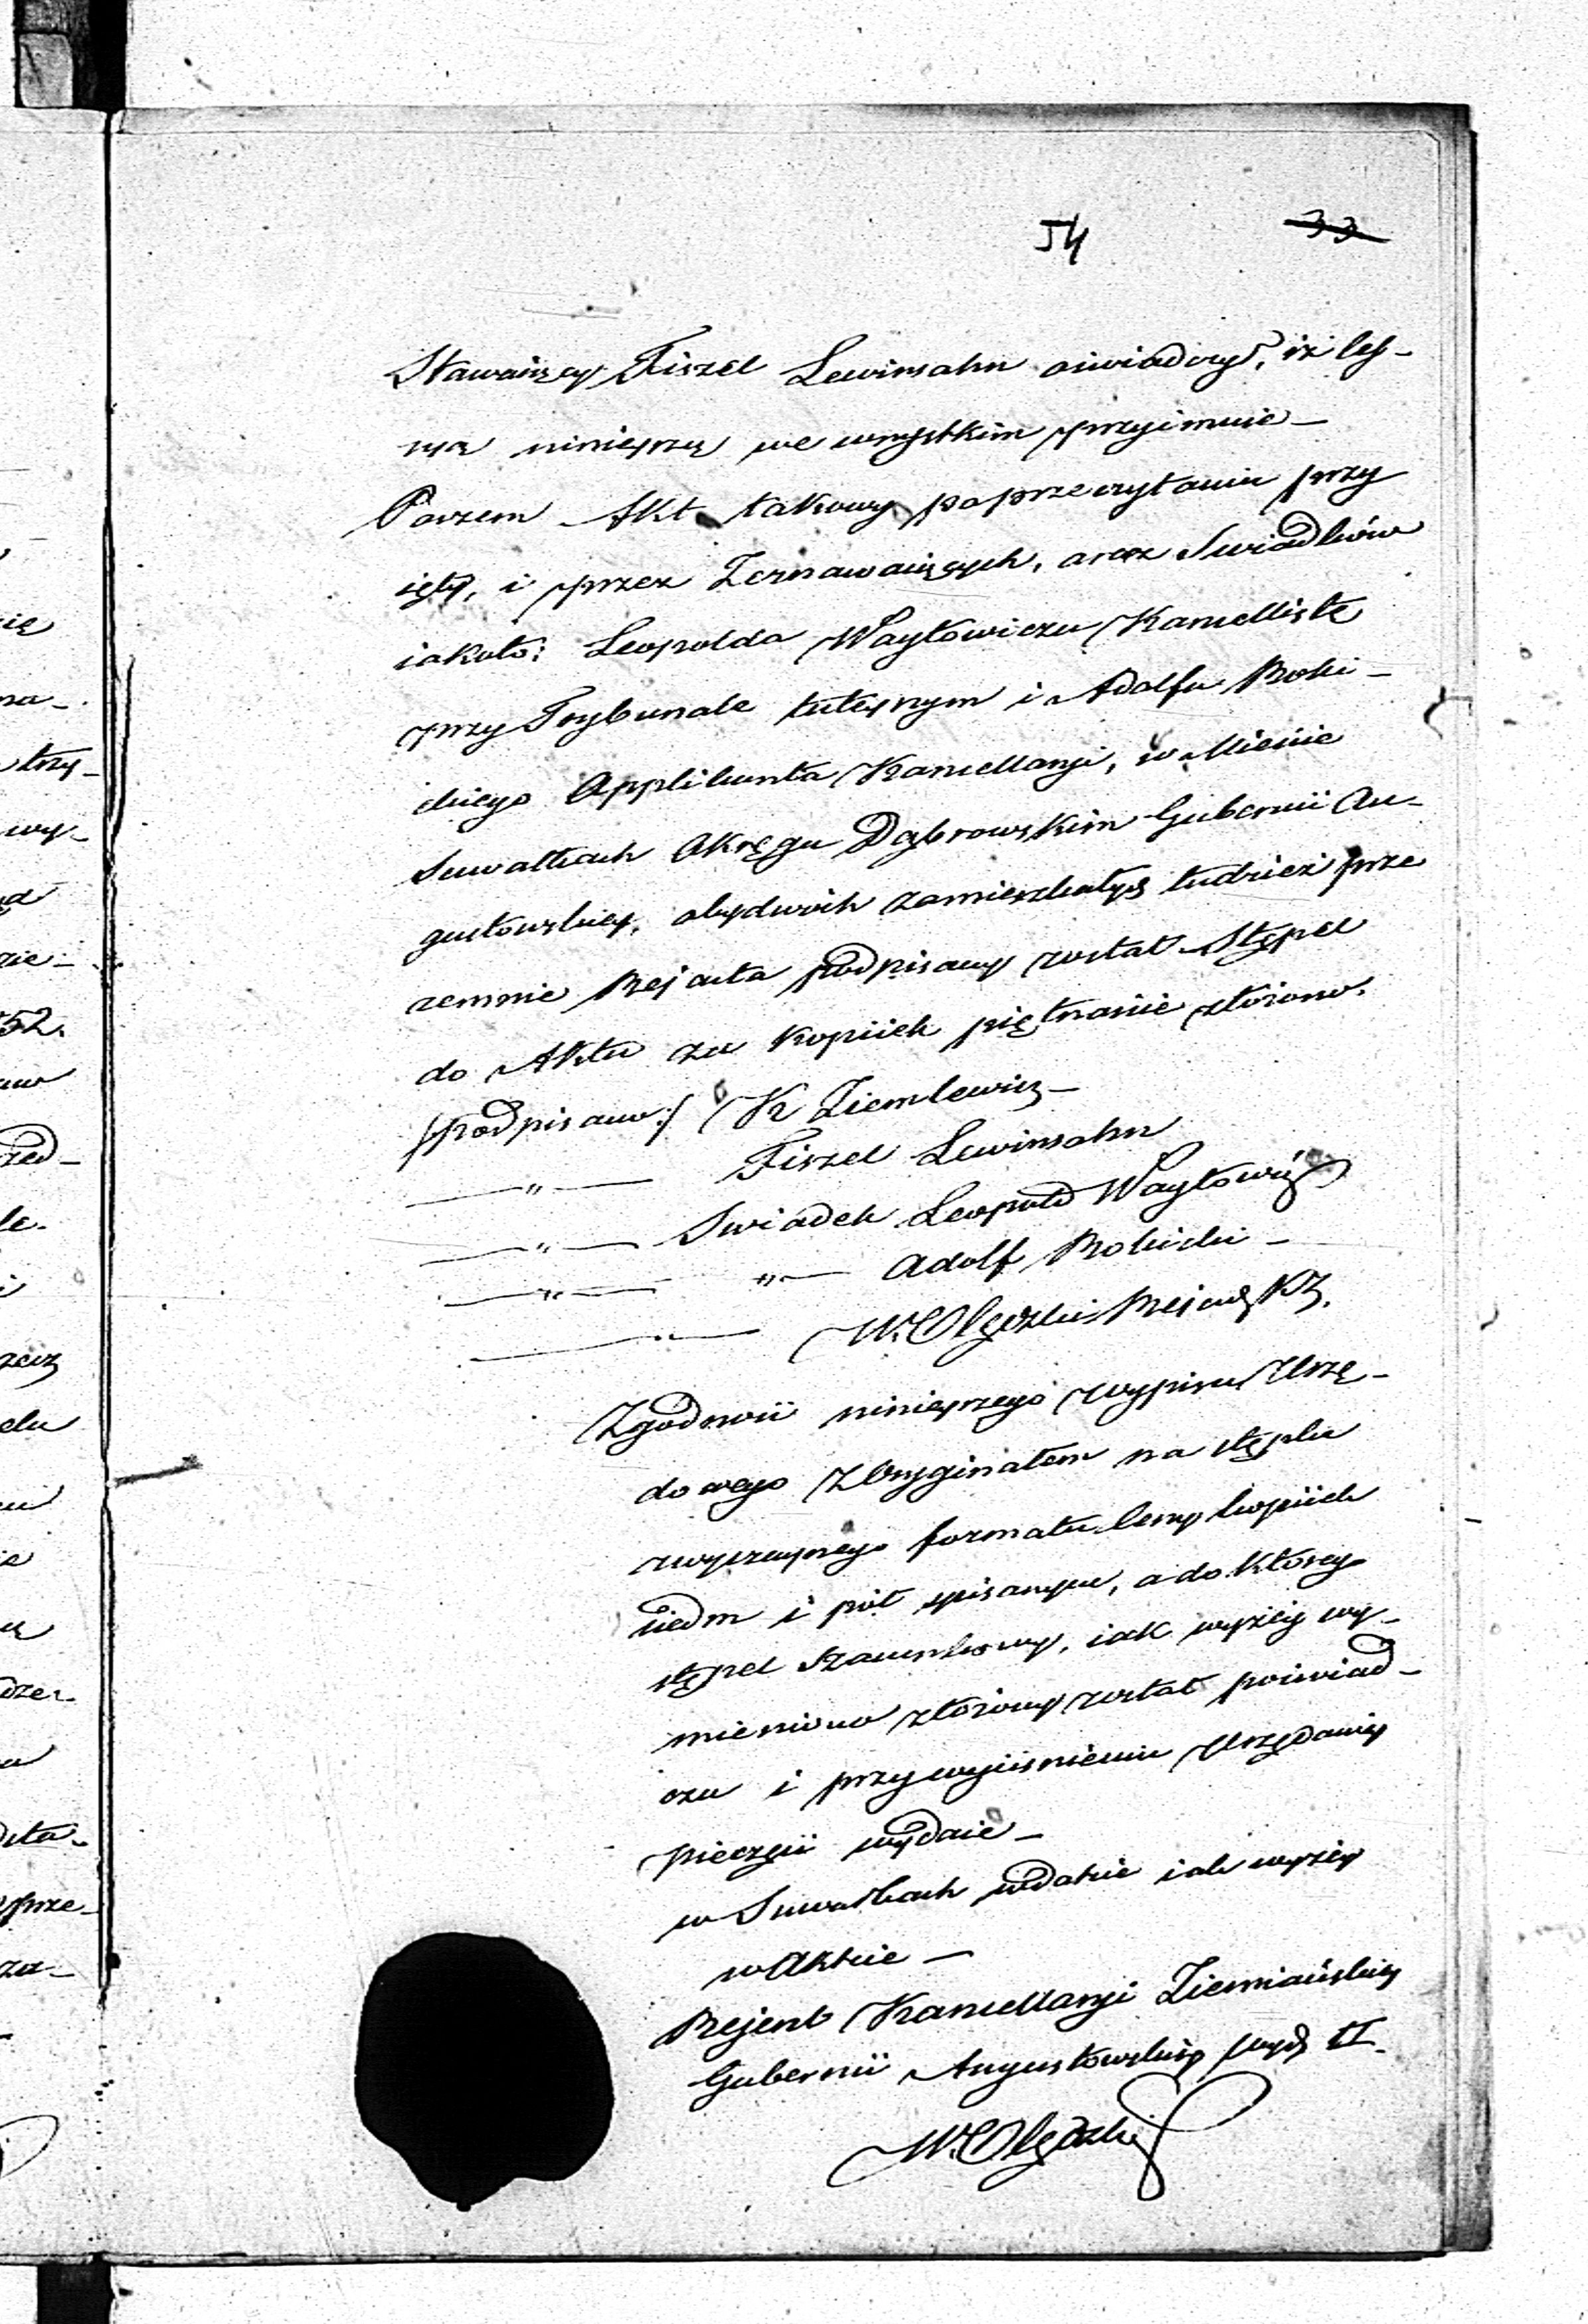 54 33
Stawaiący Fiszel Lewinsohn oświadczył, iż Ces-
syą ninieyszą we wszystkim przyimuie –
Poczem Akt takowy po przeczytaniu przy
ięty, i przez Zeznawaiących, oraz Swiadków
iakoto: Leopolda Waytowicza Kancellistę
przy Trybunale tuteyszym i Adolfa Roki-
ckiego Applikanta Kancellaryi, w Mieście
Suwałkach Okręgu Dąbrowskim Gubernii Au-
gustowskiey, obydwóch zamieszkałych tudzież prze
zemnie Rejenta podpisany został Stępel
do Aktu za kopiiek piętnaście złożono.
/podpisano:/ K Ziemlewicz –
— „ — Fiszel Lewinsohn
— „ — Swiadek Leopold Waytowicz
— „ — „ — Adolf Rokicki –
— „ — W. Olędzki Rejent KZ.
Zgodność ninieyszego wypisu Urzę-
dowego z Oryginałem na stęplu
zwyczaynego formatu Ceny kopiiek
siedm i pół spisanym, a do którego
stępel szacunkowy, iak wyżéy wy-
mieniono złożony został poświad-
cza i przy wyciśnieniu Urzędowéy
pieczęci wydaie –
w Suwałkach w dacie iak wyżéy
w Akcie —
Rejent Kancellaryi Ziemiańskiéy
Gubernii Augustowskiéy
W Olędzki